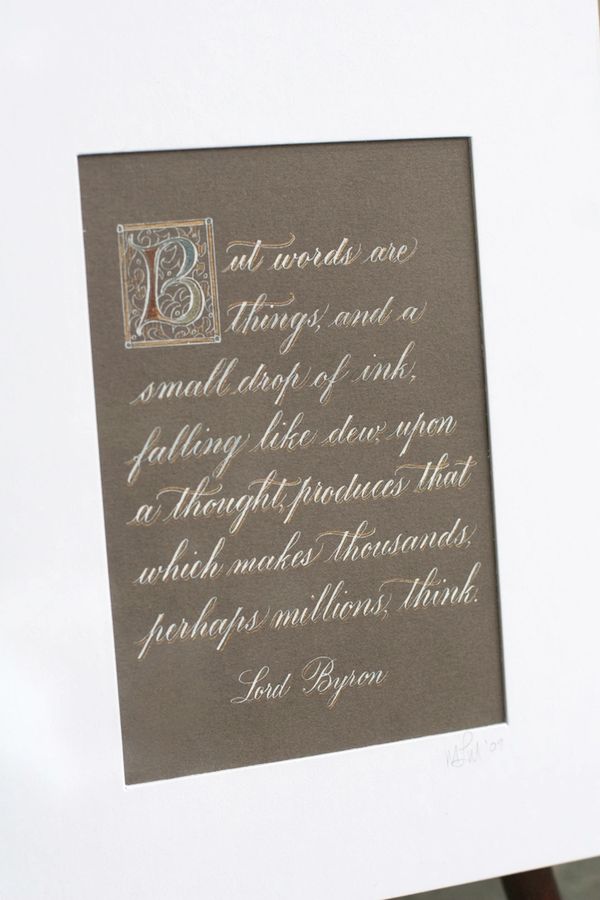 But words are
things, and a
small drop of ink,
falling like dew, upon
a thought, produces that
which makes thousands,
perhaps millions, think.
Lord Byron